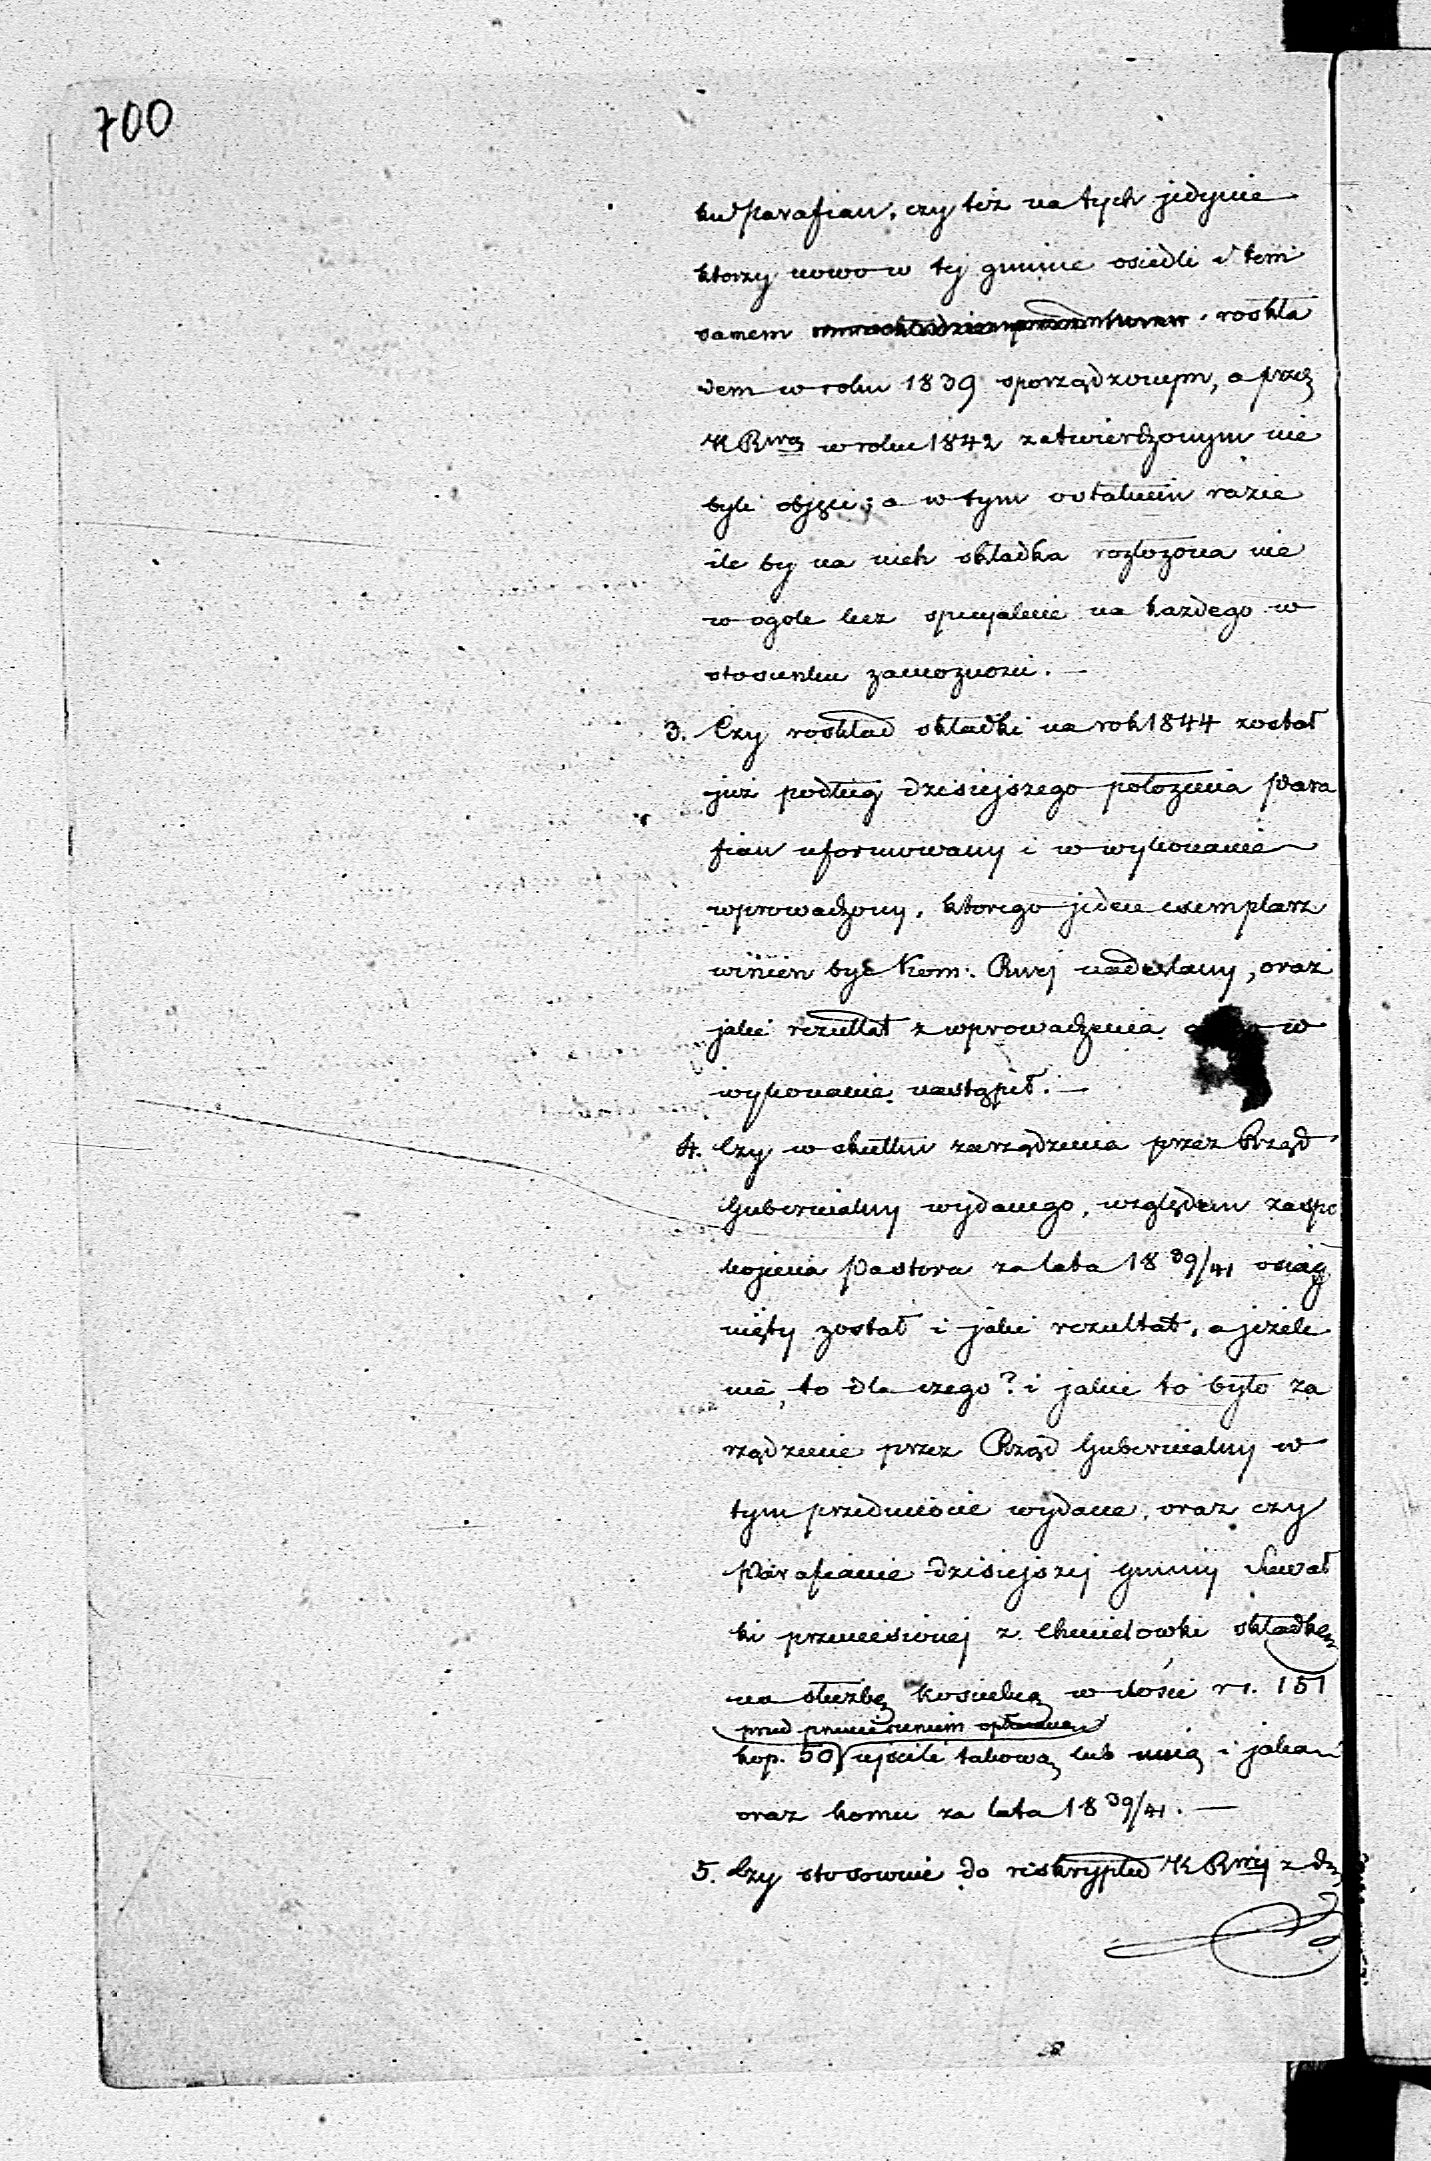 700
ku parafian, czy też na tych jedynie
ktorzy nowo w tej gminie osiedli i tem
samem roskła
dem w roku 1839 sporządzonym, a przez
KRwą w roku 1842 zatwierdzonym nie
byli objęci; a w tym ostatnim razie
ile by na nich składka rozłożona nie
w ogole lecz specyalnie na każdego w
stosunku zamożnosci. —
3. Czy roskład składki na rok 1844 został
już podług dzisiejszego położenia Para
fian uformowany i w wykonanie
wprowadzony, ktorego jeden exemplarz
winien być Kom: Rwej nadesłany, oraz
jaki rezultat z wprowadzenia w
wykonanie nastąpił. —
4. Czy w skutku zarządzenia przez Rząd
Gubernialny wydanego, względem zaspo
kojenia Pastora za lata 18 39/41 osiąg
nięty został i jaki rezultat, a jeżeli
nie, to dla czego? i jakie to było za
rządzenie przez Rząd Gubernialny w
tym przedmiocie wydane, oraz czy
Parafianie dzisiejszej gminy Suwał
ki przeniesionej z Chmielowki składkę
na służbę Koscielną w ilości rs. 151
przed przeniesieniem opłacaną
kop. 50 uiscili takową lub inną i jaką
oraz komu za lata 18 39/41. —
5. Czy stosownie do reskryptu KRwej z d.